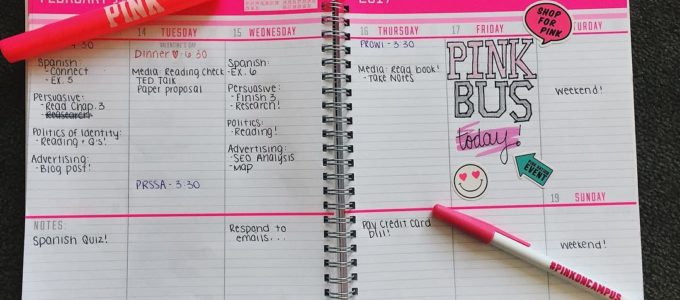 FEBRUARY
PINK
4:30
Spanish:
- Connect
- Ex. 5
Persuasive:
- Read Chap. 3
- Research!
Politics of Identity:
- Reading + Q's!
Advertising:
- Blog post!
NOTES:
Spanish Quiz!
14 TUESDAY
VALENTINE'S DAY
Dinner ♡: 6:30
Media: Reading Check
TED Talk
Paper proposal
PRSSA - 3:30
15 WEDNESDAY
Spanish:
- Ex. 6
Persuasive:
- Finish 3
- Research!
Politics:
- Reading!
Advertising:
- SEO Analysis
- Map
Respond to
emails...
2017
16 THURSDAY
PROWL - 3:30
Media: Read book!
- Take Notes
Pay Credit Card
bill!
17 FRIDAY
PINK
BUS
today!
EVENT
SHOP
FOR
PINK
SATURDAY
Weekend!
19 SUNDAY
Weekend!
#PINKONCAMPUS